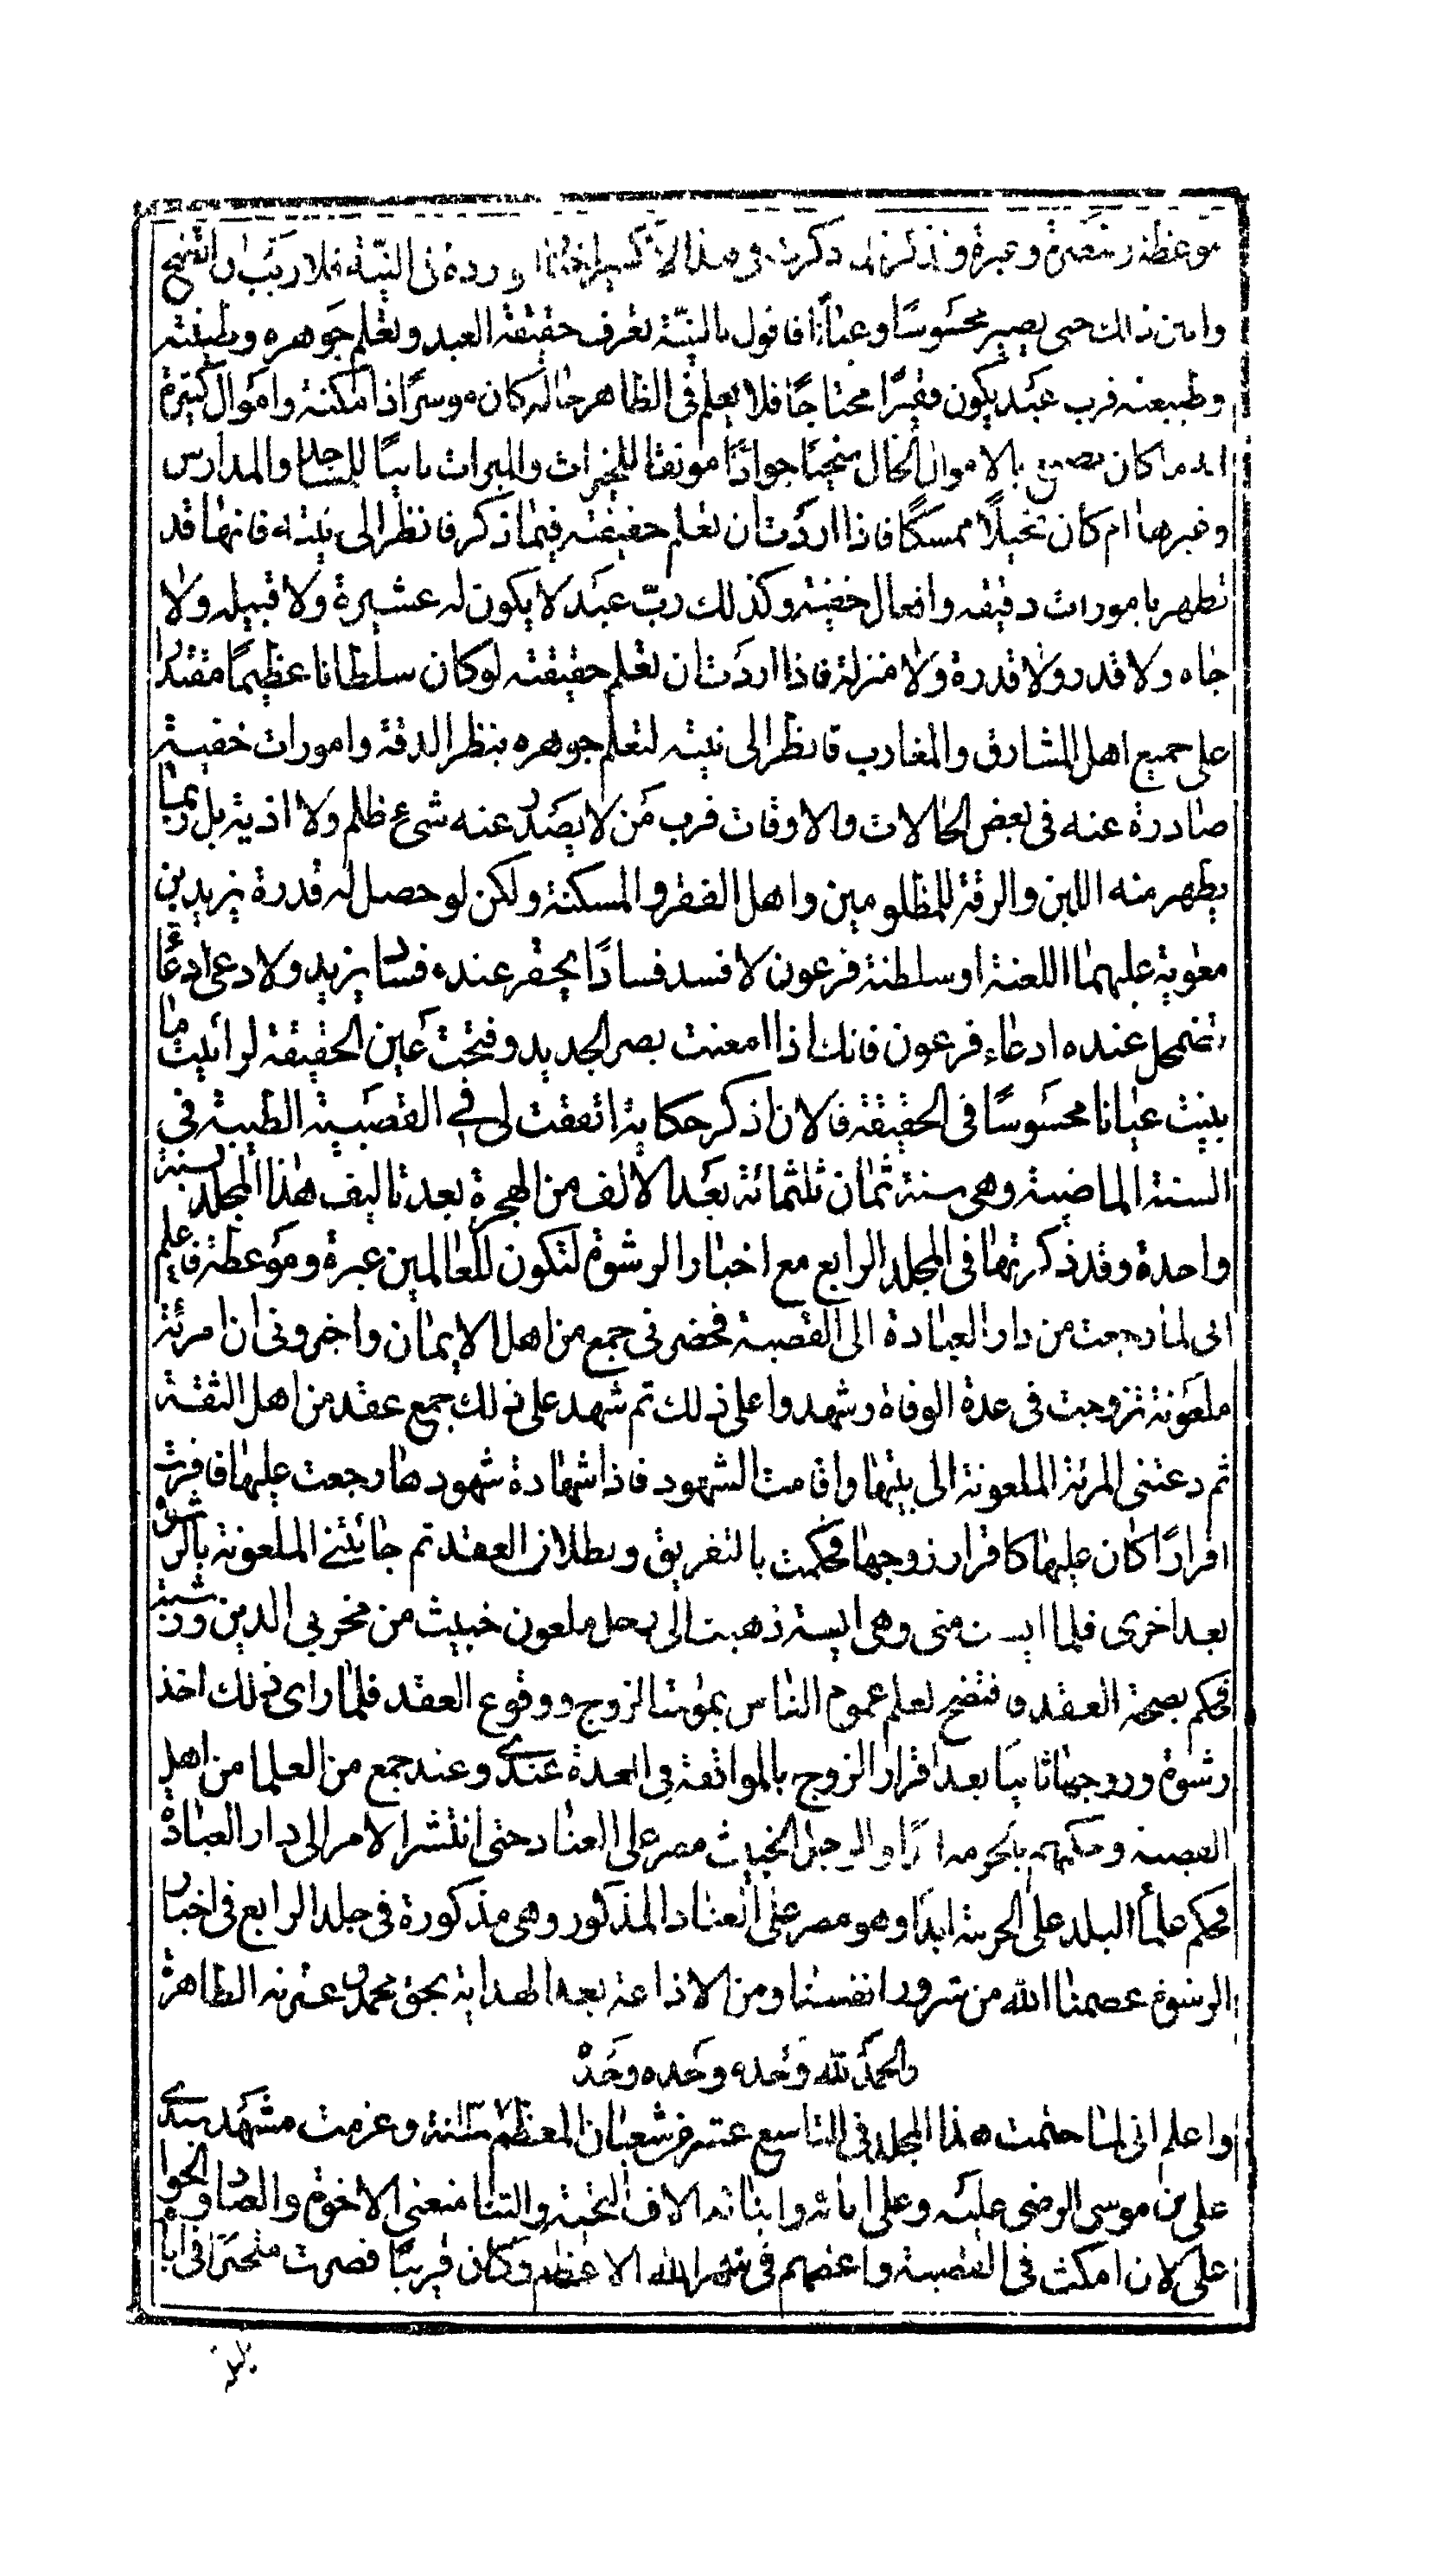 موعظة وعبرة ذكرت فى هذا الاكسير وردة فى النيّة فلا ريب
وابين ذلك حتى يصير محسوسًا وعيانًا فاقول بالنيّة تعرف حقيقة العبد وتعلم جوهره وطينته
وطبيعته فرب عبد يكون فقيرًا محتاجًا فلا يعلم فى الظاهر حاله كان موسرًا ذا مكنة واموال كثيرة
كان بالاموال الحال سخيًا جوادًا موفقا للخيرات والمبرات بانيًا للمساجد والمدارس
وغيرها ام كان بخيلًا ممسكًا فاذا اردت ان تعلم حقيقته فيما ذكر فانظر الى نيته فانها قد
تظهر بامورات دقيقه وافعال خفية وكذلك ربّ عبد لا يكون له عشيرة ولا قبيله ولا
جاه ولا قدر ولا قدرة ولا منزلة فاذا اردت ان تعلم حقيقته لو كان سلطانا عظيمًا مقتدرا
على جميع اهل المشارق والمغارب فانظر الى نيته لتعلم جوهره بنظر الدقة وامورات خفية
صادرة عنه فى بعض الحالات والاوقات فرب من لا يصدر عنه شئ ظلم ولا اذية بل ربما
يظهر منه اللين والرقة للمظلومين واهل الفقر والمسكنة ولكن لو حصل له قدرة يزيد بن
معوية عليهما اللعنة او سلطنة فرعون لافسد فسادًا يحقر عنده فساد يزيد ولادعى ادعًا
تضمحل عنده ادعاء فرعون فانك اذا امعنت بصر الحديد وفتحت عين الحقيقة لرائيت ما
بينت عيانا محسوسًا فى الحقيقة فالان اذكر حكاية اتفقت لى فى القصبة الطيبة فى
السنة الماضية وهى سنة ثمان ثلثمائة بعد الالف من الهجرة بعد تاليف هذا المجلد بسنة
واحدة وقد ذكرتها فى المجلد الرابع مع اخبار الرشوة لتكون للعالمين عبرة وموعظة فاعلم
انى لما رجعت من دار العبادة الى القصبة فحضرنى جمع من اهل الايمان واخبرونى ان امرئة
ملعونة تزوجت فى عدة الوفاة وشهدوا على ذلك ثم شهد على ذلك جمع عقد من اهل الثقة
ثم دعتنى المرئة الملعونة الى بيتها واقامت الشهود فاذا شهادة شهودها رجعت عليها فاقرت
اقرارًا كان عليها كاقرار زوجها فحكمت بالتفريق وبطلان العقد ثم جائتنى الملعونة بالرشوة
بعد اخرى فلما ايست منى وهى ايسة ذهبت الى رجل ملعون خبيث من مخربى الدين ورشته
فحكم بصحة العقد فافتضح لعلم عموم الناس بموت الزوج ووقوع العقد فلما راى ذلك اخذ
رشوة وزوجها ثانيا بعد اقرار الزوج بالمواقعة فى العدة عندى وعند جمع من العلما من اهل
القصبة وحكمهم بالحرمة ابدًا والرجل الخبيث مصر على العناد حتى انتشر الامر الى دار العبادة
فحكم علمأ البلد على الحرمة ابدًا وهو مصر على العناد المذكور وهى مذكورة فى جلد الرابع فى اخبار
الرشوة عصمنا الله من شرور انفسنا ومن الاذاعة بعد الهداية بحق محمد وعترته الطاهرة
والحمد لله وحده وحده وحده
واعلم انى لما ختمت هذا المجلد فى التاسع عشر من شعبان المعظم سنة وعزمت مشهد سيدى
على بن موسى الرضى عليه وعلى ابائه وابنائه الاف التحية والثنا منعنى الاخوة
على لان امكث فى القصبة واعضهم فى شهر الله الاعظم وكان قريبًا فصرت متحيرًا فى